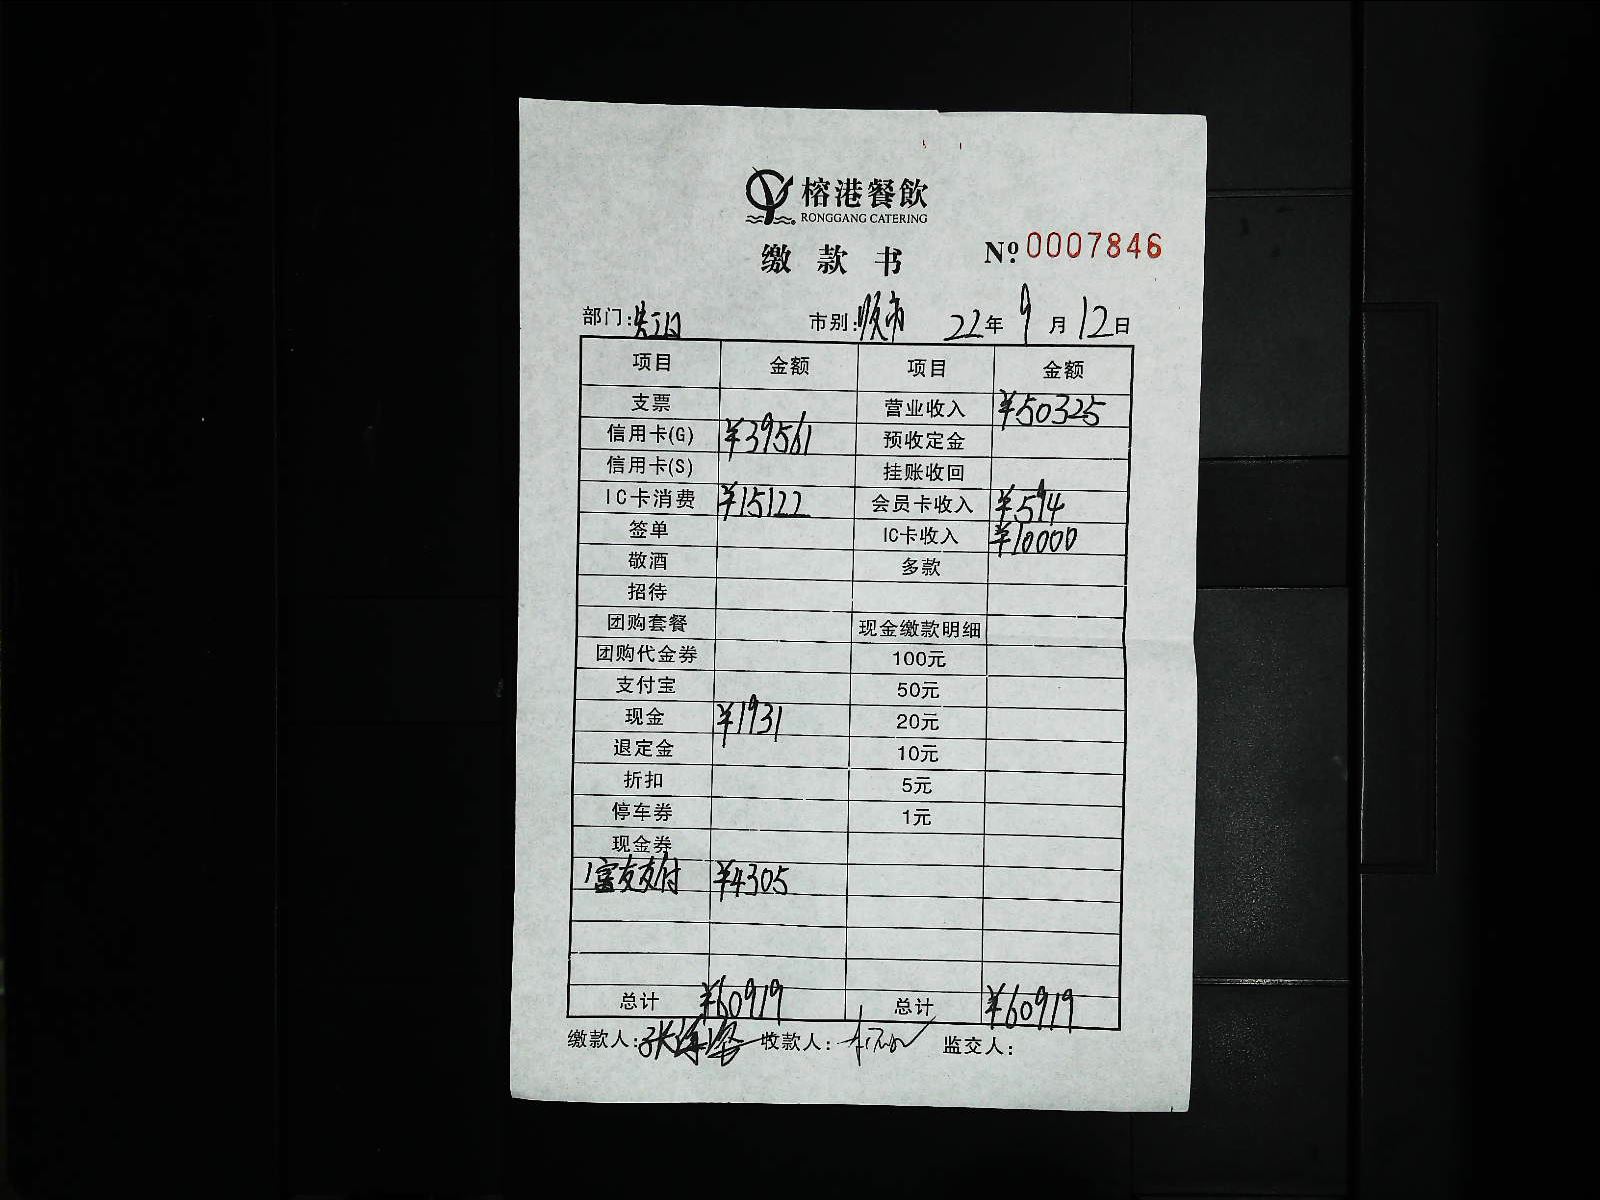 榕港餐飲
RONGGANG CATERING
缴款书 Nº 0007846
部门: 市别: 22年9月12日
项目 金额 项目 金额
支票 营业收入 ¥50325
信用卡(G) ¥39561 预收定金
信用卡(S) 挂账收回
IC卡消费 ¥15122 会员卡收入 ¥594
签单 IC卡收入 ¥10000
敬酒 多款
招待
团购套餐 现金缴款明细
团购代金券 100元
支付宝 50元
现金 ¥1931 20元
退定金 10元
折扣 5元
停车券 1元
现金券
富友支付 ¥4305
总计 ¥60919 总计 ¥60919
缴款人: 收款人: 监交人: